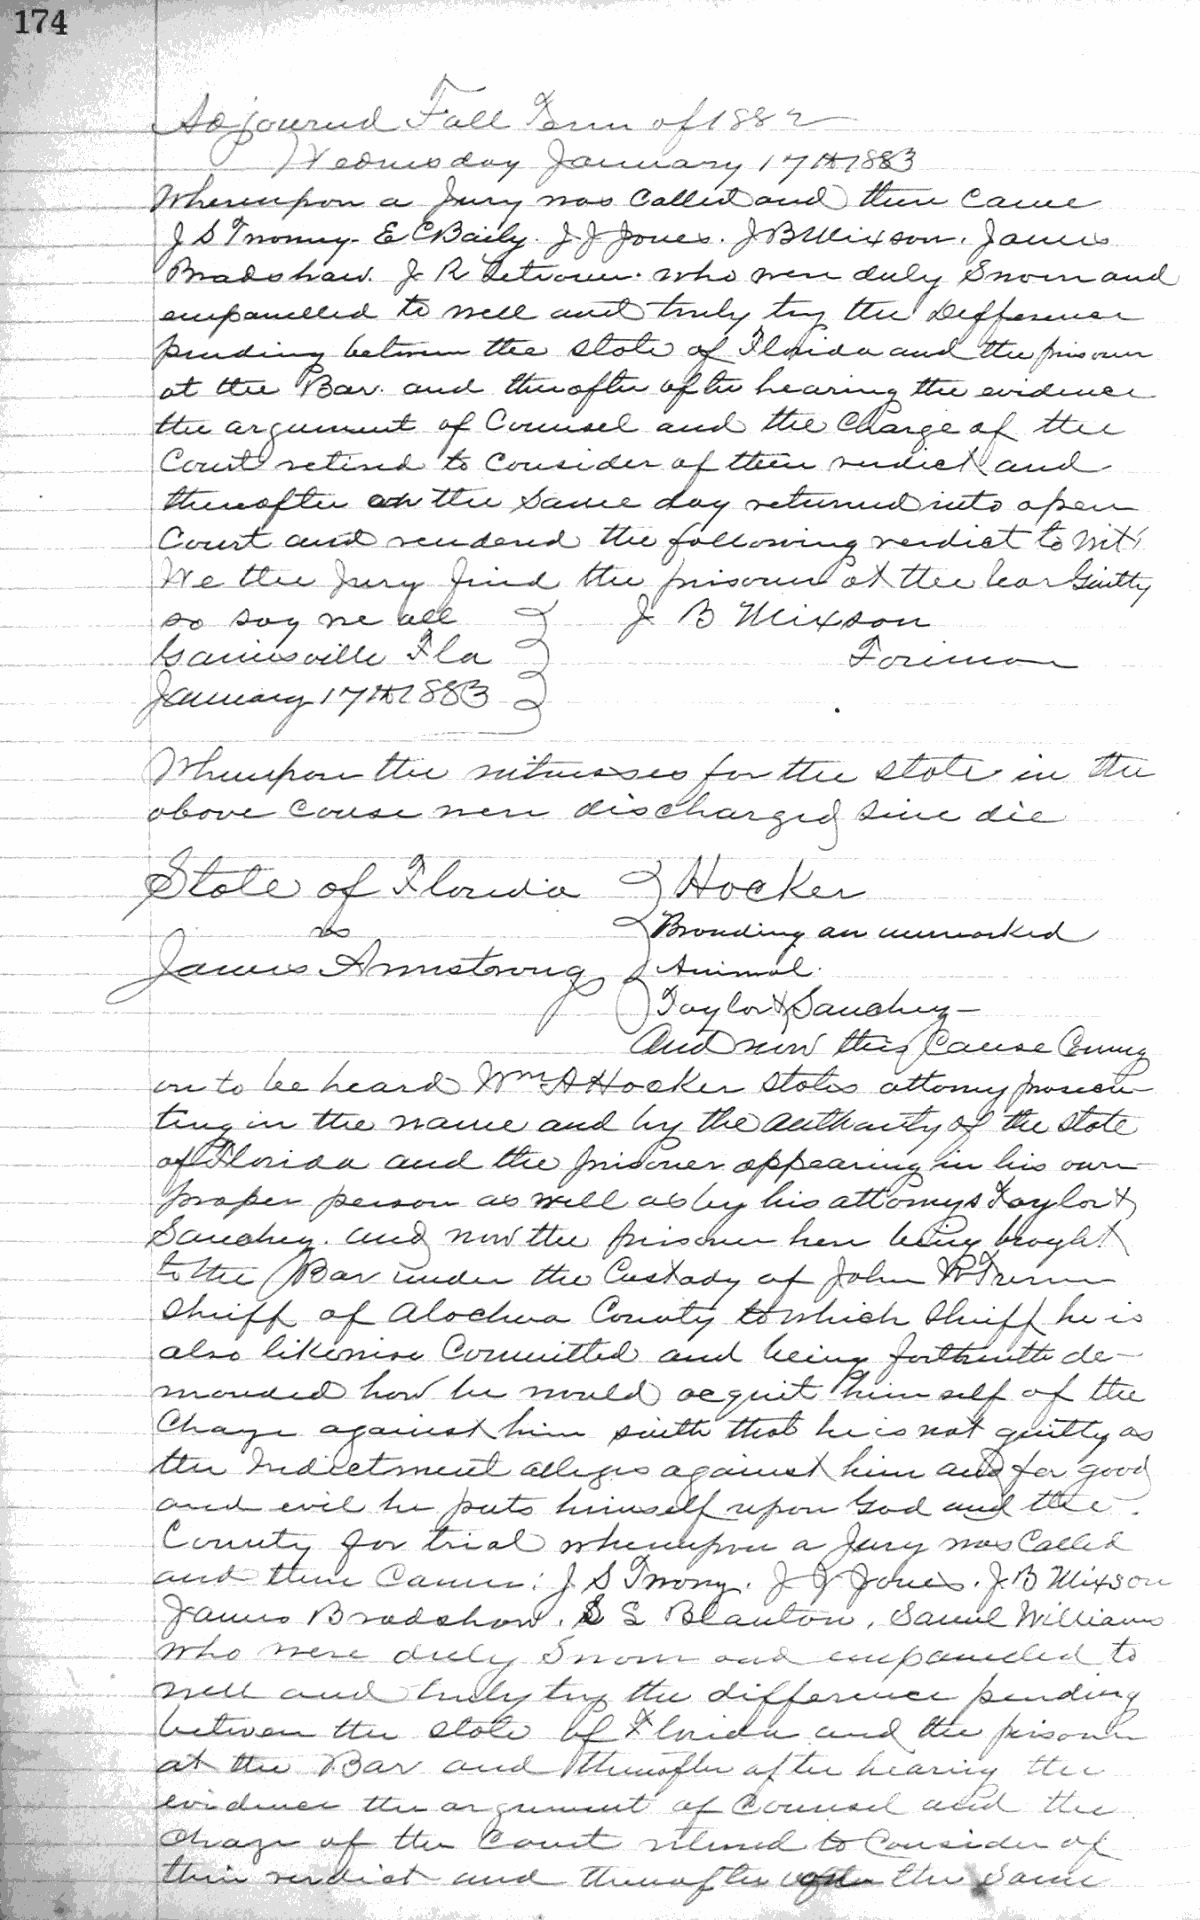 174
Adjourned Fall Term of 1882
Wednesday January 17th 1883
Whereupon a Jury was Called and there came
J S Twomey. E C Baily. J J Jones. J B Mixson. James
Bradshaw. J R who were duly Sworn and
empanelled to well and truly try the Defference
pending between the State of Florida and the prisoner
at the Bar. and thereafter after hearing the evidence
the argument of Counsel and the Charge of the
Court retired to Consider of their verdict and
thereafter on the Same day returned into open
Court and rendered the following verdict to wit
We the Jury find the prisoner at the bar Guilty
so say we all J B Mixson
Gainesville Fla Foriman
January 17th 1883
Whereupon the witnesses for the State in the
above Couse were discharged Sine die
State of Florida Hocker
vs Branding an unmarked
James Armstrong Animal.
Taylor & Sanchey —
And now this Cause Coming
on to be heard Wm A Hocker States attorney prosecu-
ting in the name and by the authority of the State
of Florida and the prisoner appearing in his own
proper person as well as by his attornys Taylor &
Sanchey. and now the prisoner here being broght
to the Bar under the Custody of John W
Sheriff of Alachua County to which Sheriff he is
also likewise Committed and being forthwith de-
manded how he would acquit himself of the
Charge against him saith that he is not guilty as
the Indictment alleges against him and for good
and evil he puts himself upon God and the
County for trial whereupon a Jury was Called
and there Came: J S Twomy. J J Jones. J B Mixson
James Bradshaw. S S Blanton, Samuel Williams
who were duly Sworn and empanelled to
well and truly try the difference pending
between the State of Florida and the prisoner
at the Bar and thereafter after hearing the
evidence the argument of Counsel and the
Charge of the Court retired to Consider of
their verdict and thereafter the Same